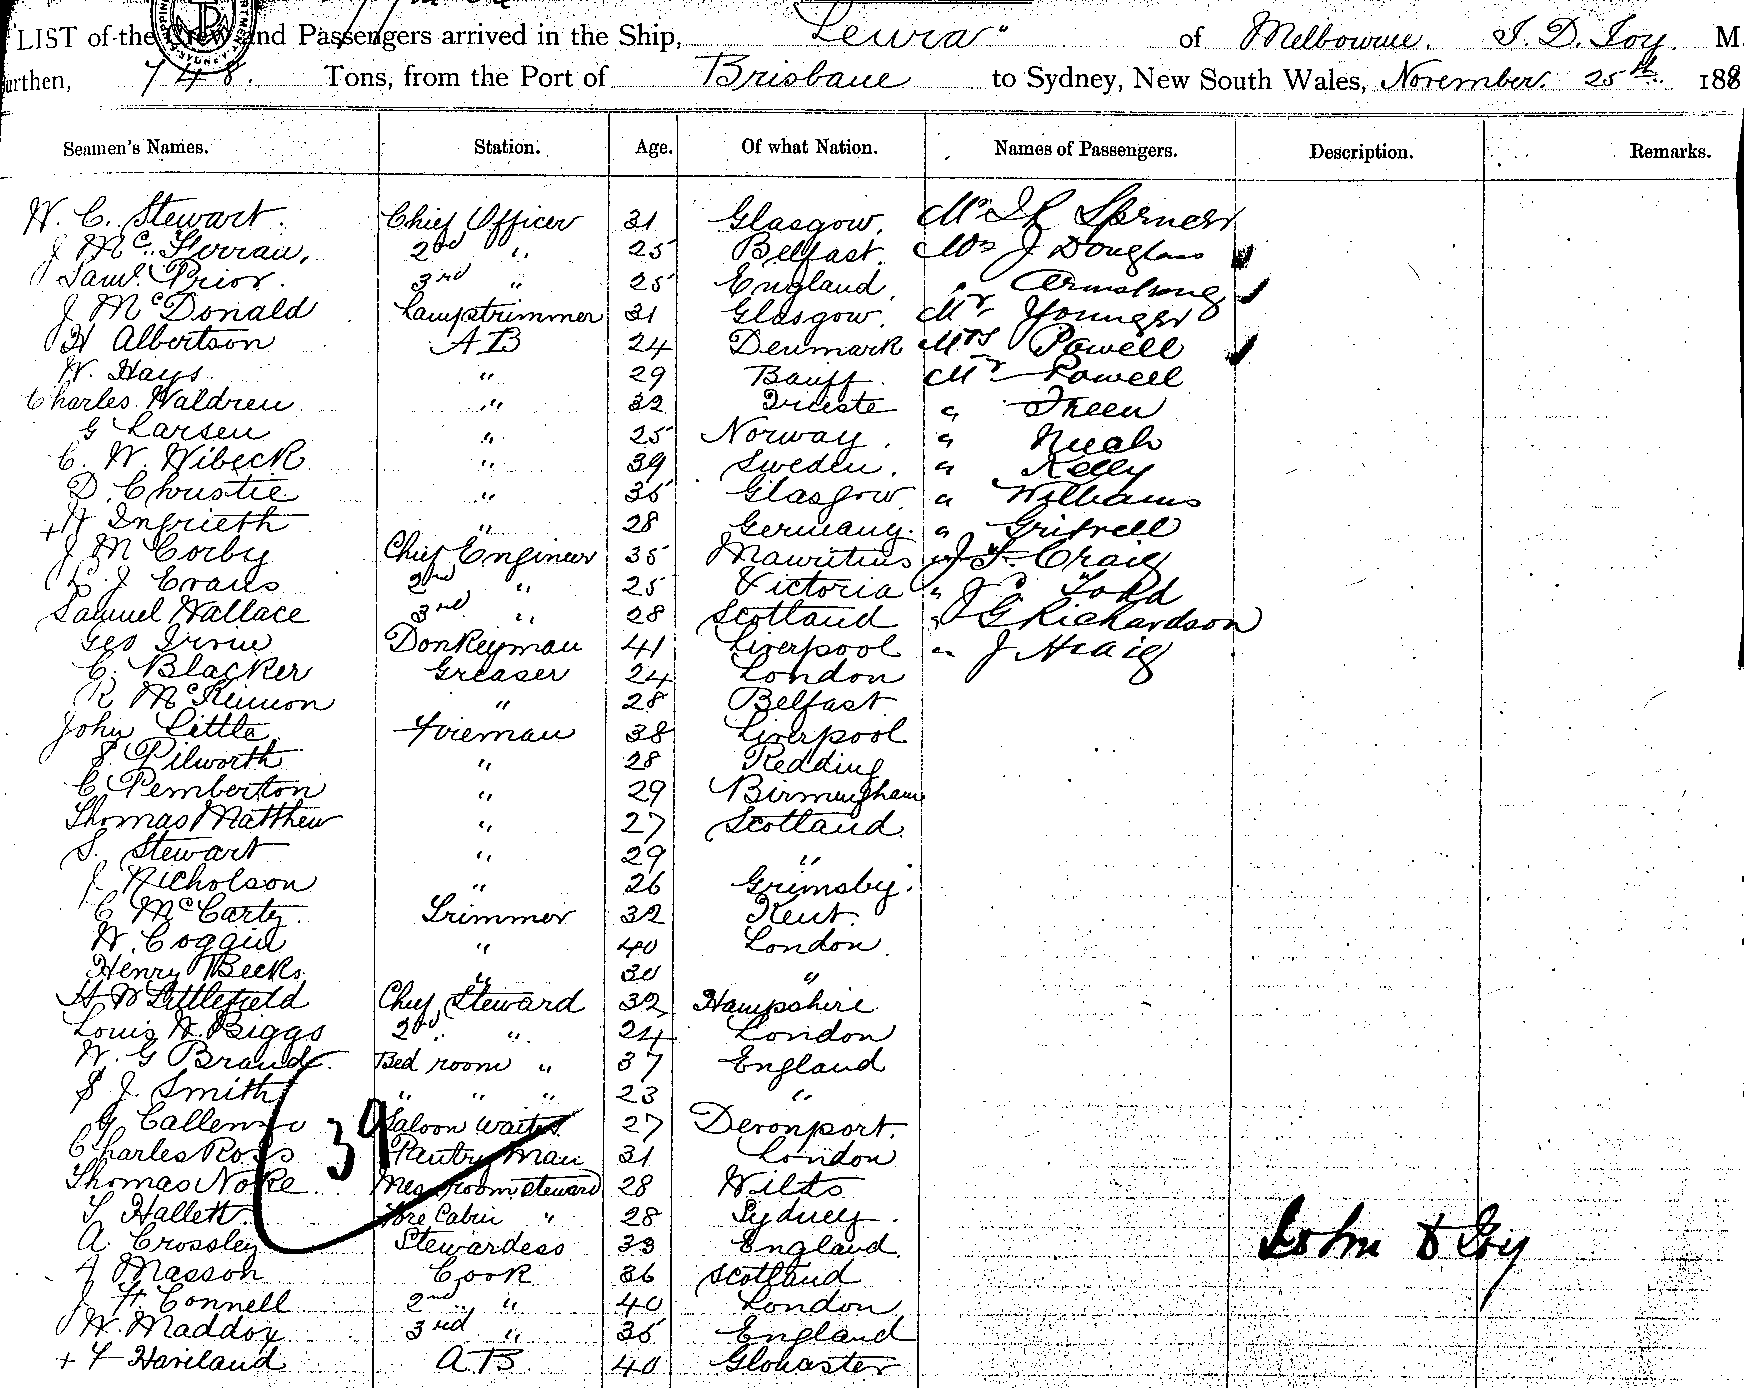 LIST of the Crew and Passengers arrived in the Ship, " of Melbourne. J. D. Joy. M.
urthen, 748. Tons, from the Port of Brisbane to Sydney, New South Wales, November 25th 188
Seamen's Names. Station. Age. Of what Nation. Names of Passengers. Description. Remarks.
W. C. Stewart. Chief Officer 31 Glasgow. Mr
J Mc 2nd " 25 Belfast. Mrs J Douglass
Saml. Prior. 3rd " 25 England. " Armstrong
J McDonald Lamptrimmer 31 Glasgow. Mr Younger
H Albertson AB 24 Denmark Mrs Powell
W. Hays " 29 Banff. Mr Powell
Charles Waldren " 32 Trieste "
G Larsen " 25 Norway. "
C. W. Wibeck " 39 Sweden. " Kelly
D. Christie " 35 Glasgow " Williams
+ " 28 Germany. "
J M Corby Chief Engineer 35 Mauritius " J. Craig
J Evans 2nd " 25 Victoria " J Todd
Samuel Wallace 3rd " 28 Scotland " J G Richardson
Geo Irvine Donkeyman 41 Liverpool " J
C. Blacker Greaser 24 London
R McKinnon " 28 Belfast
John Little Fireman 38 Liverpool
S. Pilworth " 28 Redding
C Pemberton " 29 Birmingham
Thomas Matthew " 27 Scotland
S. Stewart " 29 "
J. Nicholson " 26 Grimsby.
C McCarty. Trimmer 32 Kent.
W. Coggin " 40 London
Henry Beeks " 30 "
H W Littlefield Chief Steward 32 Hampshire
Louis W. Biggs 2nd " 24 London
W. G Brand. Bed room " 37 England
S J. Smith " " " 23 "
G Saloon Waiter 27 Devonport.
Charles Ross Pantry man 31 London
Thomas Noke Messroom steward 28 Wilts
39
T Hallett. Fore Cabin " 28 Sydney.
A Crossley Stewardess 33 England.
J Masson Cook 36 Scotland
J H Connell 2nd " 40 London
W. Maddox 3rd " 35 England
+ F Haviland A.B. 40 Gloucaster
John D Joy